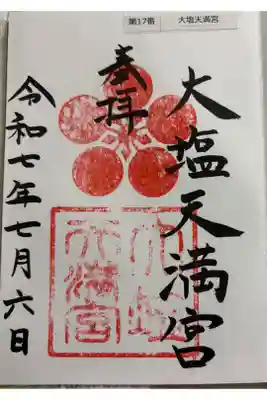 第17番 大塩天満宮
奉拝
大塩天満宮
大塩天満宮
令和七年七月六日